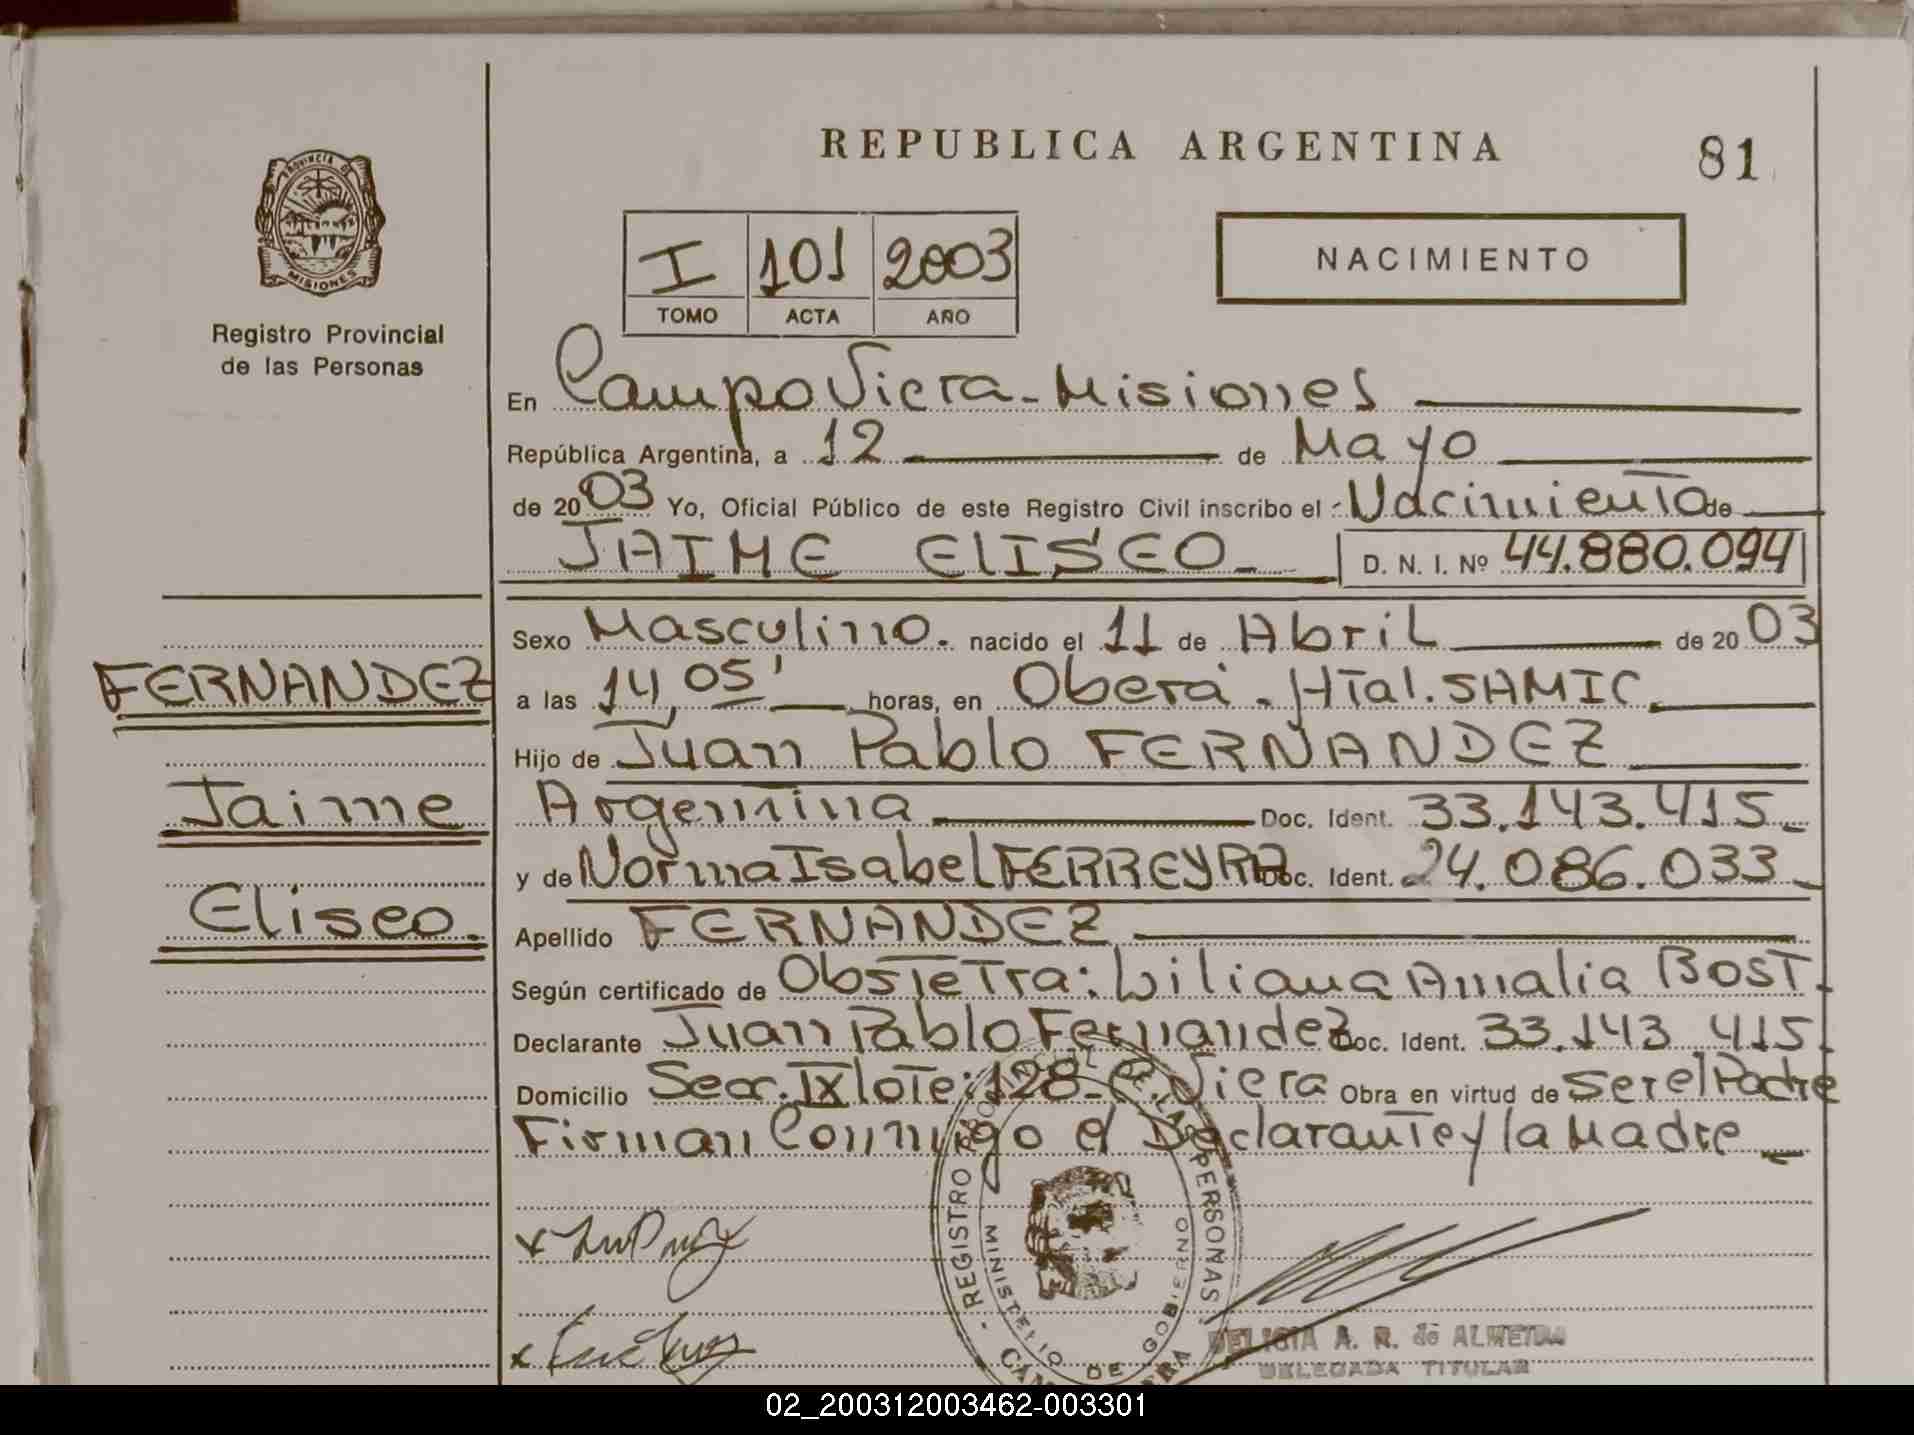 REPUBLICA ARGENTINA
81
PROVINCIA DE
MISIONES
Registro Provincial
de las Personas
I 101 2003
TOMO ACTA AÑO
NACIMIENTO
En Campo Viera - Misiones
República Argentina, a 12 de Mayo
de 2003 Yo, Oficial Público de este Registro Civil inscribo el Nacimiento de
JAIME ELISEO - D. N. I. Nº 44.880.094
Sexo Masculino. nacido el 11 de Abril de 2003
a las 14,05' horas, en Oberá - Htal. SAMIC
FERNANDEZ
Hijo de Juan Pablo FERNANDEZ
Jaime
Argentina Doc. Ident. 33.143.415-
y de Norma Isabel FERREYRA Doc. Ident. 24.086.033-
Eliseo.
Apellido FERNANDEZ
Según certificado de Obstetra: Liliana Amalia BOST.
Declarante Juan Pablo Fernandez Doc. Ident. 33.143 415.
Domicilio Secc. IX lote: 128- C. Viera Obra en virtud de ser el Padre
Firman Conmigo el Declarante y la Madre
REGISTRO PROVINCIAL DE LAS PERSONAS
MINISTERIO DE GOBIERNO
DELICIA A. R. de ALMEIDA
DELEGADA TITULAR
02_200312003462-003301